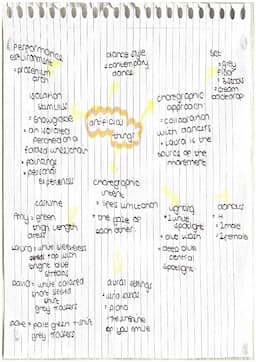 Performance
environment
• proscenium
arch
Dance style
• contemporary
dance
Set
• grey
floor
• 3 stools
• cream
backdrop
isolation
stimulus
• Snowglobe
• an isolated
• paintings
• personal
experiences
artificial
things
choreographic
approach:
• collaboration
with dancers
• Laura is the
source of the
movement
choreographic
intent
• lifes limitation
• the gaze on
each other
costume
Amy = green
thigh length
dress
Laura = white sleeveless
top with
bright blue
David = white collared
short sleeved
shirt
grey trousers
pale green t-shirt
grey trousers
aural settings
• piano
• the sunshine
of you smile
lighting
• 2 white
spotlight
• blue wash
• deep blue
central
spotlight
dancers
• 4
• 2 male
• 2 female